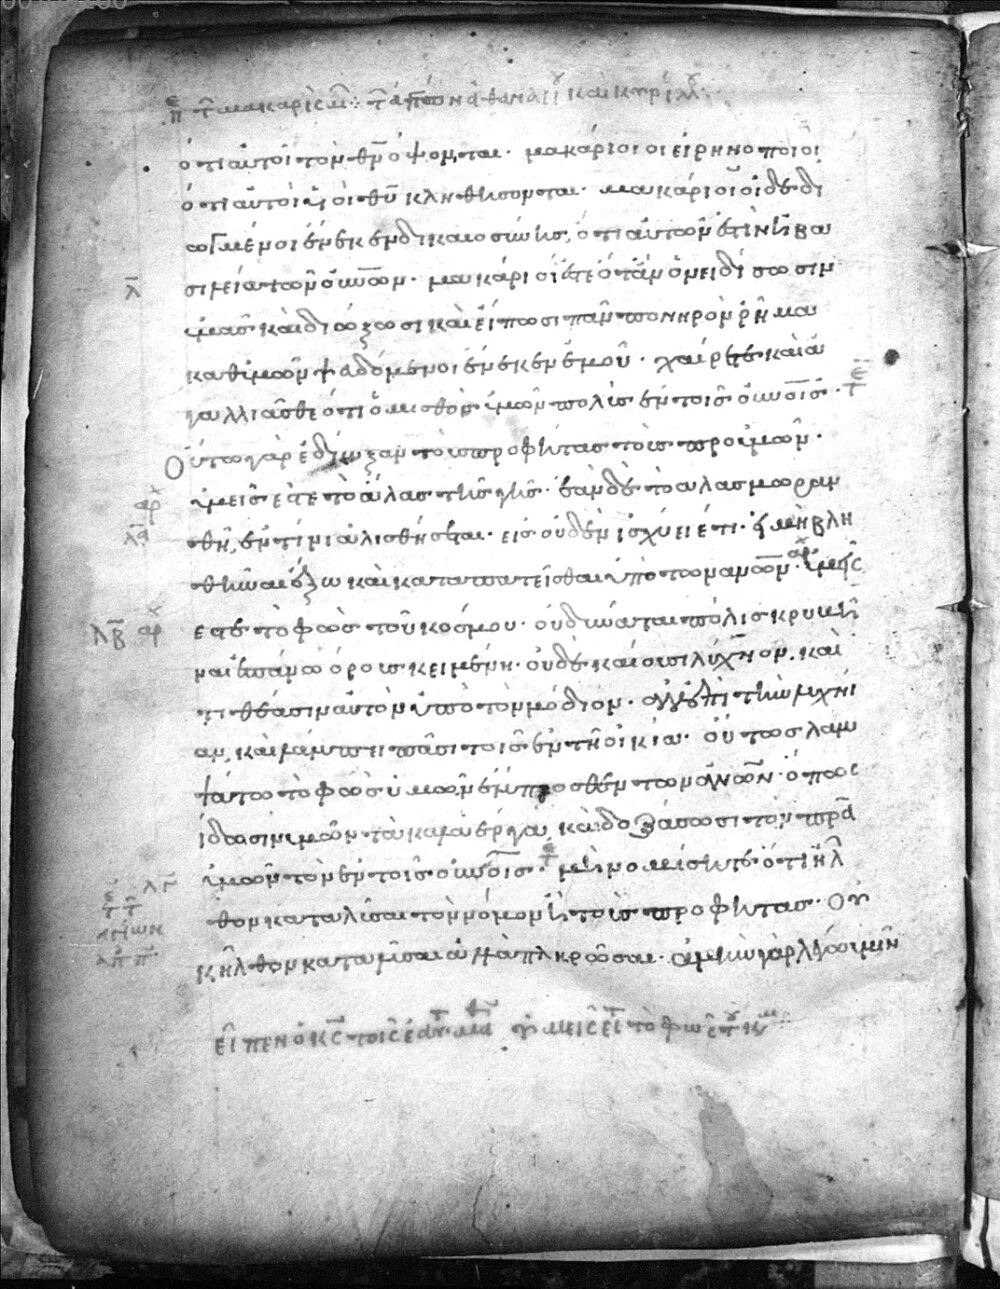 ὅτι αὐτοὶ τὸν θν̅ ὄψονται. μακάριοι οἱ εἰρηνοποιοὶ
ὅτι αὐτοὶ υἱοὶ θυ̅ κληθήσονται. μακάριοι οἱ δεδι
ωγμένοι ἕνεκεν δικαιοσύνης, ὅτι αὐτῶν ἐστὶν ἡ βα
σιλεία τῶν οὐνῶν. μακάριοί ἐστε ὅταν ὀνειδίσωσιν
λ̅
ὑμᾶς καὶ διώξωσι καὶ εἴπωσι πᾶν πονηρὸν ῥῆμα
καθ ὑμῶν ψευδόμενοι ἕνεκεν ἐμοῦ. χαίρετε καὶ ἀ
γαλλιᾶσθε ὅτι ὁ μισθὸς ὑμῶν πολὺς ἐν τοῖς οὐνοῖς.
Οὕτω γὰρ ἐδίωξαν τοὺς προφήτας τοὺς πρὸ ὑμῶν.
ὑμεῖς ἐστε τὸ ἅλας τῆς γῆς. ἐὰν δὲ τὸ ἅλας μωραν
λα
θῆ, ἐν τίνι ἁλισθήσεται. εἰς οὐδὲν ἰσχύει ἔτι. εἰ μὴ βλη
θῆναι ἔξω καὶ καταπατεῖσθαι ὑπὸ τῶν ανων̅. ὑμεῖς
λβ̅ αρχ
ἐστε τὸ φῶς τοῦ κόσμου. οὐ δύναται πόλις κρυβῆ
ναι ἐπάνω ὄρους κειμένη. οὐδὲ καίουσι λύχνον, καὶ
τιθέασιν αὐτὸν ὑπὸ τὸν μόδιον. ἀλλ ἐπὶ τὴν λυχνί
αν, καὶ λάμπει πᾶσι τοῖς ἐν τῆ οἰκία. οὕτως λαμ
ψάτω τὸ φῶς ὑμῶν ἔμπροσθεν τῶν ανων̅. ὅπως
ἴδωσιν ὑμῶν τὰ καλὰ ἔργα, καὶ δοξάσωσι τὸν πρα̅
λγ̅
ὑμῶν τὸν ἐν τοῖς οὐνοῖς. μὴ νομίσητε ὅτι ἦλ
θον καταλῦσαι τὸν νόμον ἢ τοὺς προφήτας. Οὐ
κ ἦλθον καταλῦσαι ἀλλὰ πληρῶσαι. ἀμὴν γὰρ λέγω ὑμῖν
εἶπεν ὁ κς̅ τοῖς ἑαυτ μαθ ὑμεῖς ἐστ τὸ φῶς τ κμ